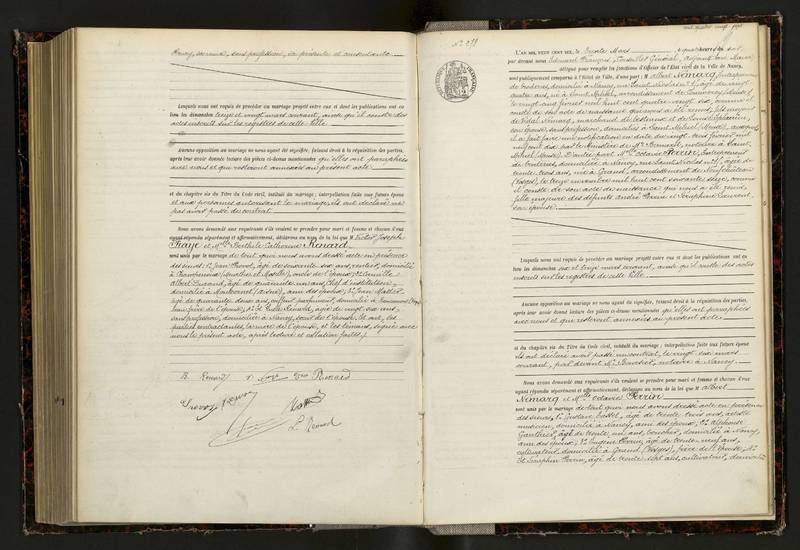 Nancy, sa veuve, sans profession, ici présente et consentante
Lesquels nous ont requis de procéder au mariage projeté entre eux et dont les publications ont eu
lieu les dimanches treize et vingt mars courant, ainsi qu'il conste des
actes inscrits sur les registres de cette Ville
Aucune opposition au mariage ne nous ayant été signifiée, faisant droit à la réquisition des parties,
après leur avoir donné lecture des pièces ci-dessus mentionnées qu'elles ont paraphées
avec nous et qui resteront annexées au présent acte
et du chapitre six du Titre du Code civil, intitulé du mariage ; interpellation faite aux futurs époux
et aux personnes autorisant le mariage, ils ont déclaré ne
pas avoir passé de contrat
Nous avons demandé aux requérants s'ils veulent se prendre pour mari et femme et chacun d'eux
ayant répondu séparément et affirmativement, déclarons au nom de la loi que M Victor Joseph
et Mlle Berthile Catherine Renard
sont unis par le mariage de tout quoi nous avons dressé acte en présence
des sieurs : 1° Jean Prevot, âgé de soixante six ans, rentier, domicilié
à (Meurthe et Moselle), oncle de l'époux ; 2° Camille
Albert Durand, âgé de quarante un ans, Chef d'institution,
domicilié à (Aisne), ami des époux ; 3° Jean
âgé de quarante deux ans, domicilié à
beau-frère de l'époux ; 4° et Renard, âgé de vingt six ans,
sans profession, domicilié à Nancy, de l'épouse. Et ont, les
parties contractantes, la mère de l'épouse, et les témoins, signé avec
nous le présent acte, après lecture et collation faites.
B. Renard
Renard
Prevot
L. Renard
N° 299
L'AN MIL NEUF CENT DIX, le trente Mars, à quatre heures du soir
par devant nous Edouard François, Conseiller Général, Adjoint au Maire
délégué pour remplir les fonctions d'Officier de l'Etat civil de la Ville de Nancy,
sont publiquement comparus à l'Hôtel de Ville, d'une part : M Albert Nimarq, Entrepreneur
de broderies, domicilié à Nancy, rue Saint Nicolas n° 7, âgé de vingt
quatre ans, né à Saint Mihiel, arrondissement de Commercy (Meuse)
le vingt cinq février mil huit cent quatre vingt six, comme il
conste de son acte de naissance qui nous a été remis, fils majeur
de Vidal Nimarq, marchand de bestiaux et de
son épouse, sans profession, domiciliés à Saint Mihiel (Meuse), auxquels
il a fait faire une notification en date du vingt deux février mil
neuf cent dix par le ministère de Me Bernard, notaire à Saint
Mihiel (Meuse). D'autre part Mlle Octavie Perrin, Entrepreneur
de broderies, domiciliée à Nancy, rue Saint Nicolas n° 7, âgée de
trente trois ans, née à Grand, arrondissement de Neufchâteau
(Vosges), le treize novembre mil huit cent soixante seize, comme
il conste de son acte de naissance qui nous a été remis,
fille majeure des défunts André Perrin et Séraphine
son épouse
Lesquels nous ont requis de procéder au mariage projeté entre eux et dont les publications ont eu
lieu les dimanches six et treize mars courant, ainsi qu'il conste des actes
inscrits sur les registres de cette Ville
Aucune opposition au mariage ne nous ayant été signifiée, faisant droit à la réquisition des parties,
après leur avoir donné lecture des pièces ci-dessus mentionnées qu'elles ont paraphées
avec nous et qui resteront annexées au présent acte
et du chapitre six du Titre du Code civil, intitulé du mariage ; interpellation faite aux futurs époux
ils ont déclaré avoir passé un contrat, le vingt six mars
courant, par devant Me notaire à Nancy
Nous avons demandé aux requérants s'ils veulent se prendre pour mari et femme et chacun d'eux
ayant répondu séparément et affirmativement, déclarons au nom de la loi que M Albert
Nimarq et Mlle Octavie Perrin
sont unis par le mariage de tout quoi nous avons dressé acte en présence
des sieurs, 1° Gustave âgé de trente trois ans, artiste
musicien, domicilié à Nancy, ami des époux ; 2° Alphonse
Gauthier, âgé de trente un ans, domicilié à Nancy,
ami des époux ; 3° Eugène Perrin, âgé de trente neuf ans,
cultivateur, domicilié à Grand (Vosges), frère de l'épouse ; 4°
Et Séraphin Perrin, âgé de trente sept ans, cultivateur, domicilié